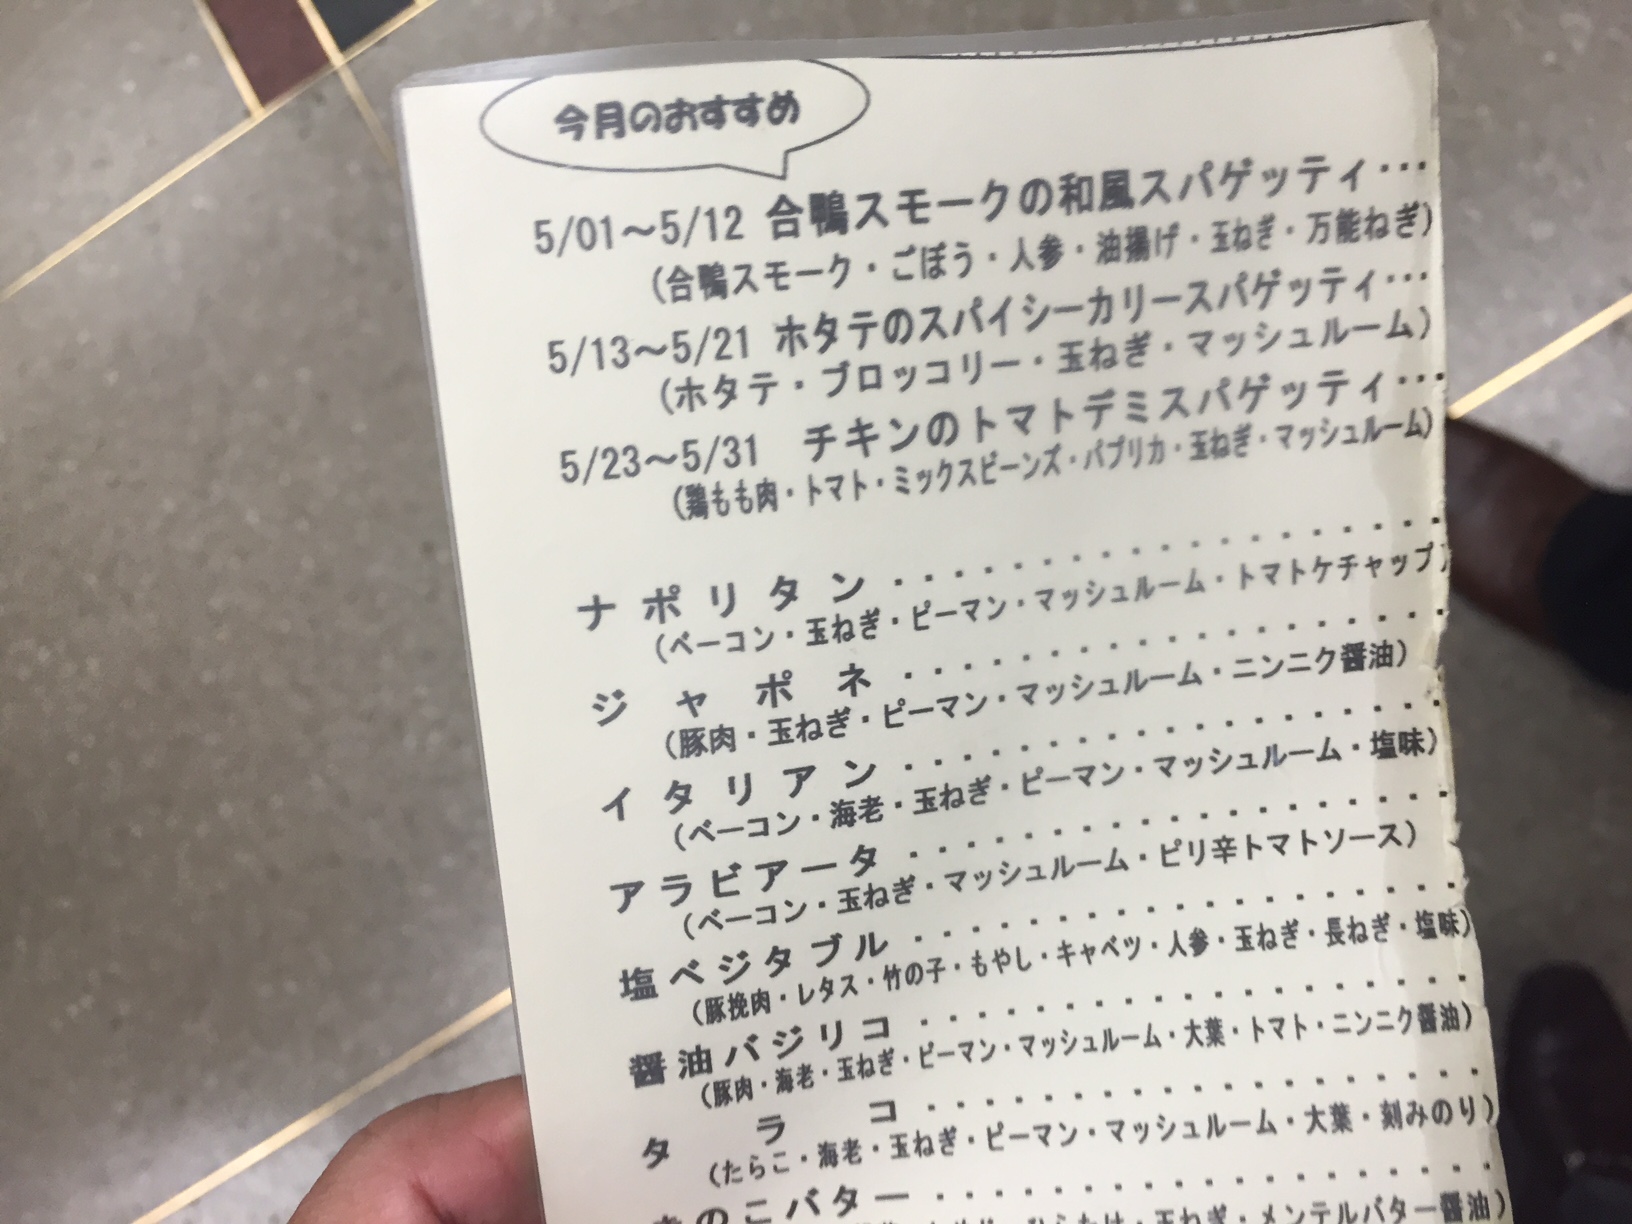 今月のおすすめ
5/01～5/12 合鴨スモークの和風スパゲッティ・・・
(合鴨スモーク・ごぼう・人参・油揚げ・玉ねぎ・万能ねぎ)
5/13～5/21 ホタテのスパイシーカリースパゲッティ・・・
(ホタテ・ブロッコリー・玉ねぎ・マッシュルーム)
5/23～5/31 チキンのトマトデミスパゲッティ・・・
(鶏もも肉・トマト・ミックスビーンズ・パプリカ・玉ねぎ・マッシュルーム)
ナポリタン・・・・・・・・・・・・・・・・・・・
(ベーコン・玉ねぎ・ピーマン・マッシュルーム・トマトケチャップ)
ジャポネ・・・・・・・・・・・・・・・・・・・
(豚肉・玉ねぎ・ピーマン・マッシュルーム・ニンニク醤油)
イタリアン・・・・・・・・・・・・・・・・・・・
(ベーコン・海老・玉ねぎ・ピーマン・マッシュルーム・塩味)
アラビアータ・・・・・・・・・・・・・・・・・・・
(ベーコン・玉ねぎ・マッシュルーム・ピリ辛トマトソース)
塩ベジタブル・・・・・・・・・・・・・・・・・・・
(豚挽肉・レタス・竹の子・もやし・キャベツ・人参・玉ねぎ・長ねぎ・塩味)
醤油バジリコ・・・・・・・・・・・・・・・・・・・
(豚肉・海老・玉ねぎ・ピーマン・マッシュルーム・大葉・トマト・ニンニク醤油)
タラコ・・・・・・・・・・・・・・・・・・・
(たらこ・海老・玉ねぎ・ピーマン・マッシュルーム・大葉・刻みのり)
きのこバター・・・・・・・・・・・・・・・・・・・
玉ねぎ・メンテルバター醤油)